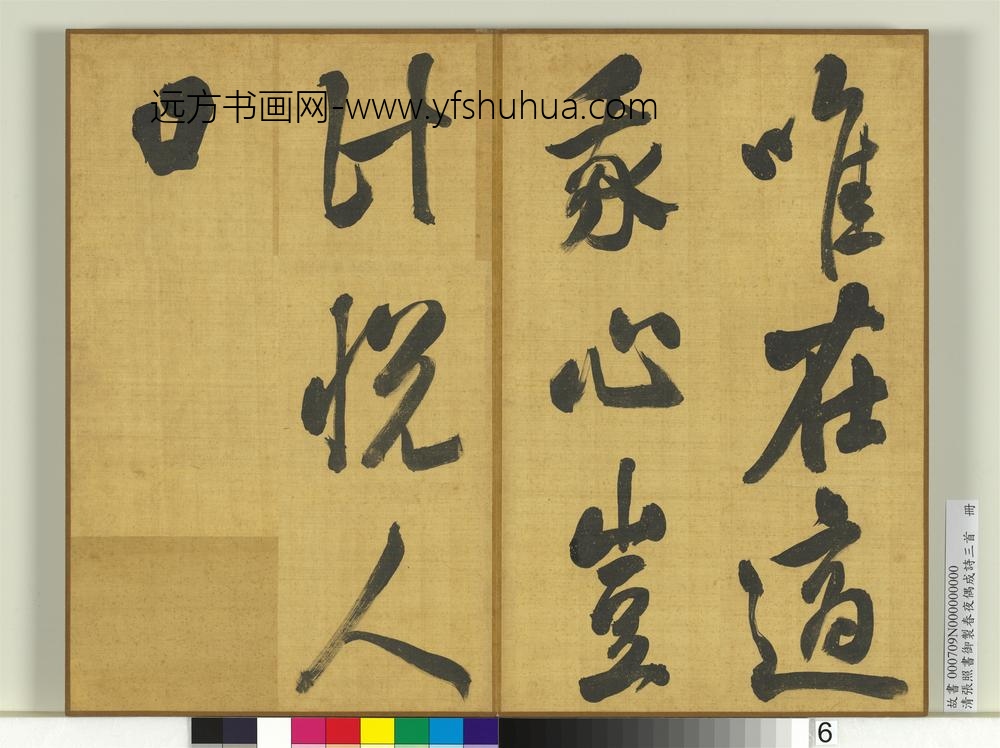 唯在適
豖心豈
計悅人
口
远方书画网-www.yfshuhua.com
故書 000709N000000000
清張照書御製春夜偶成詩三首 冊
6